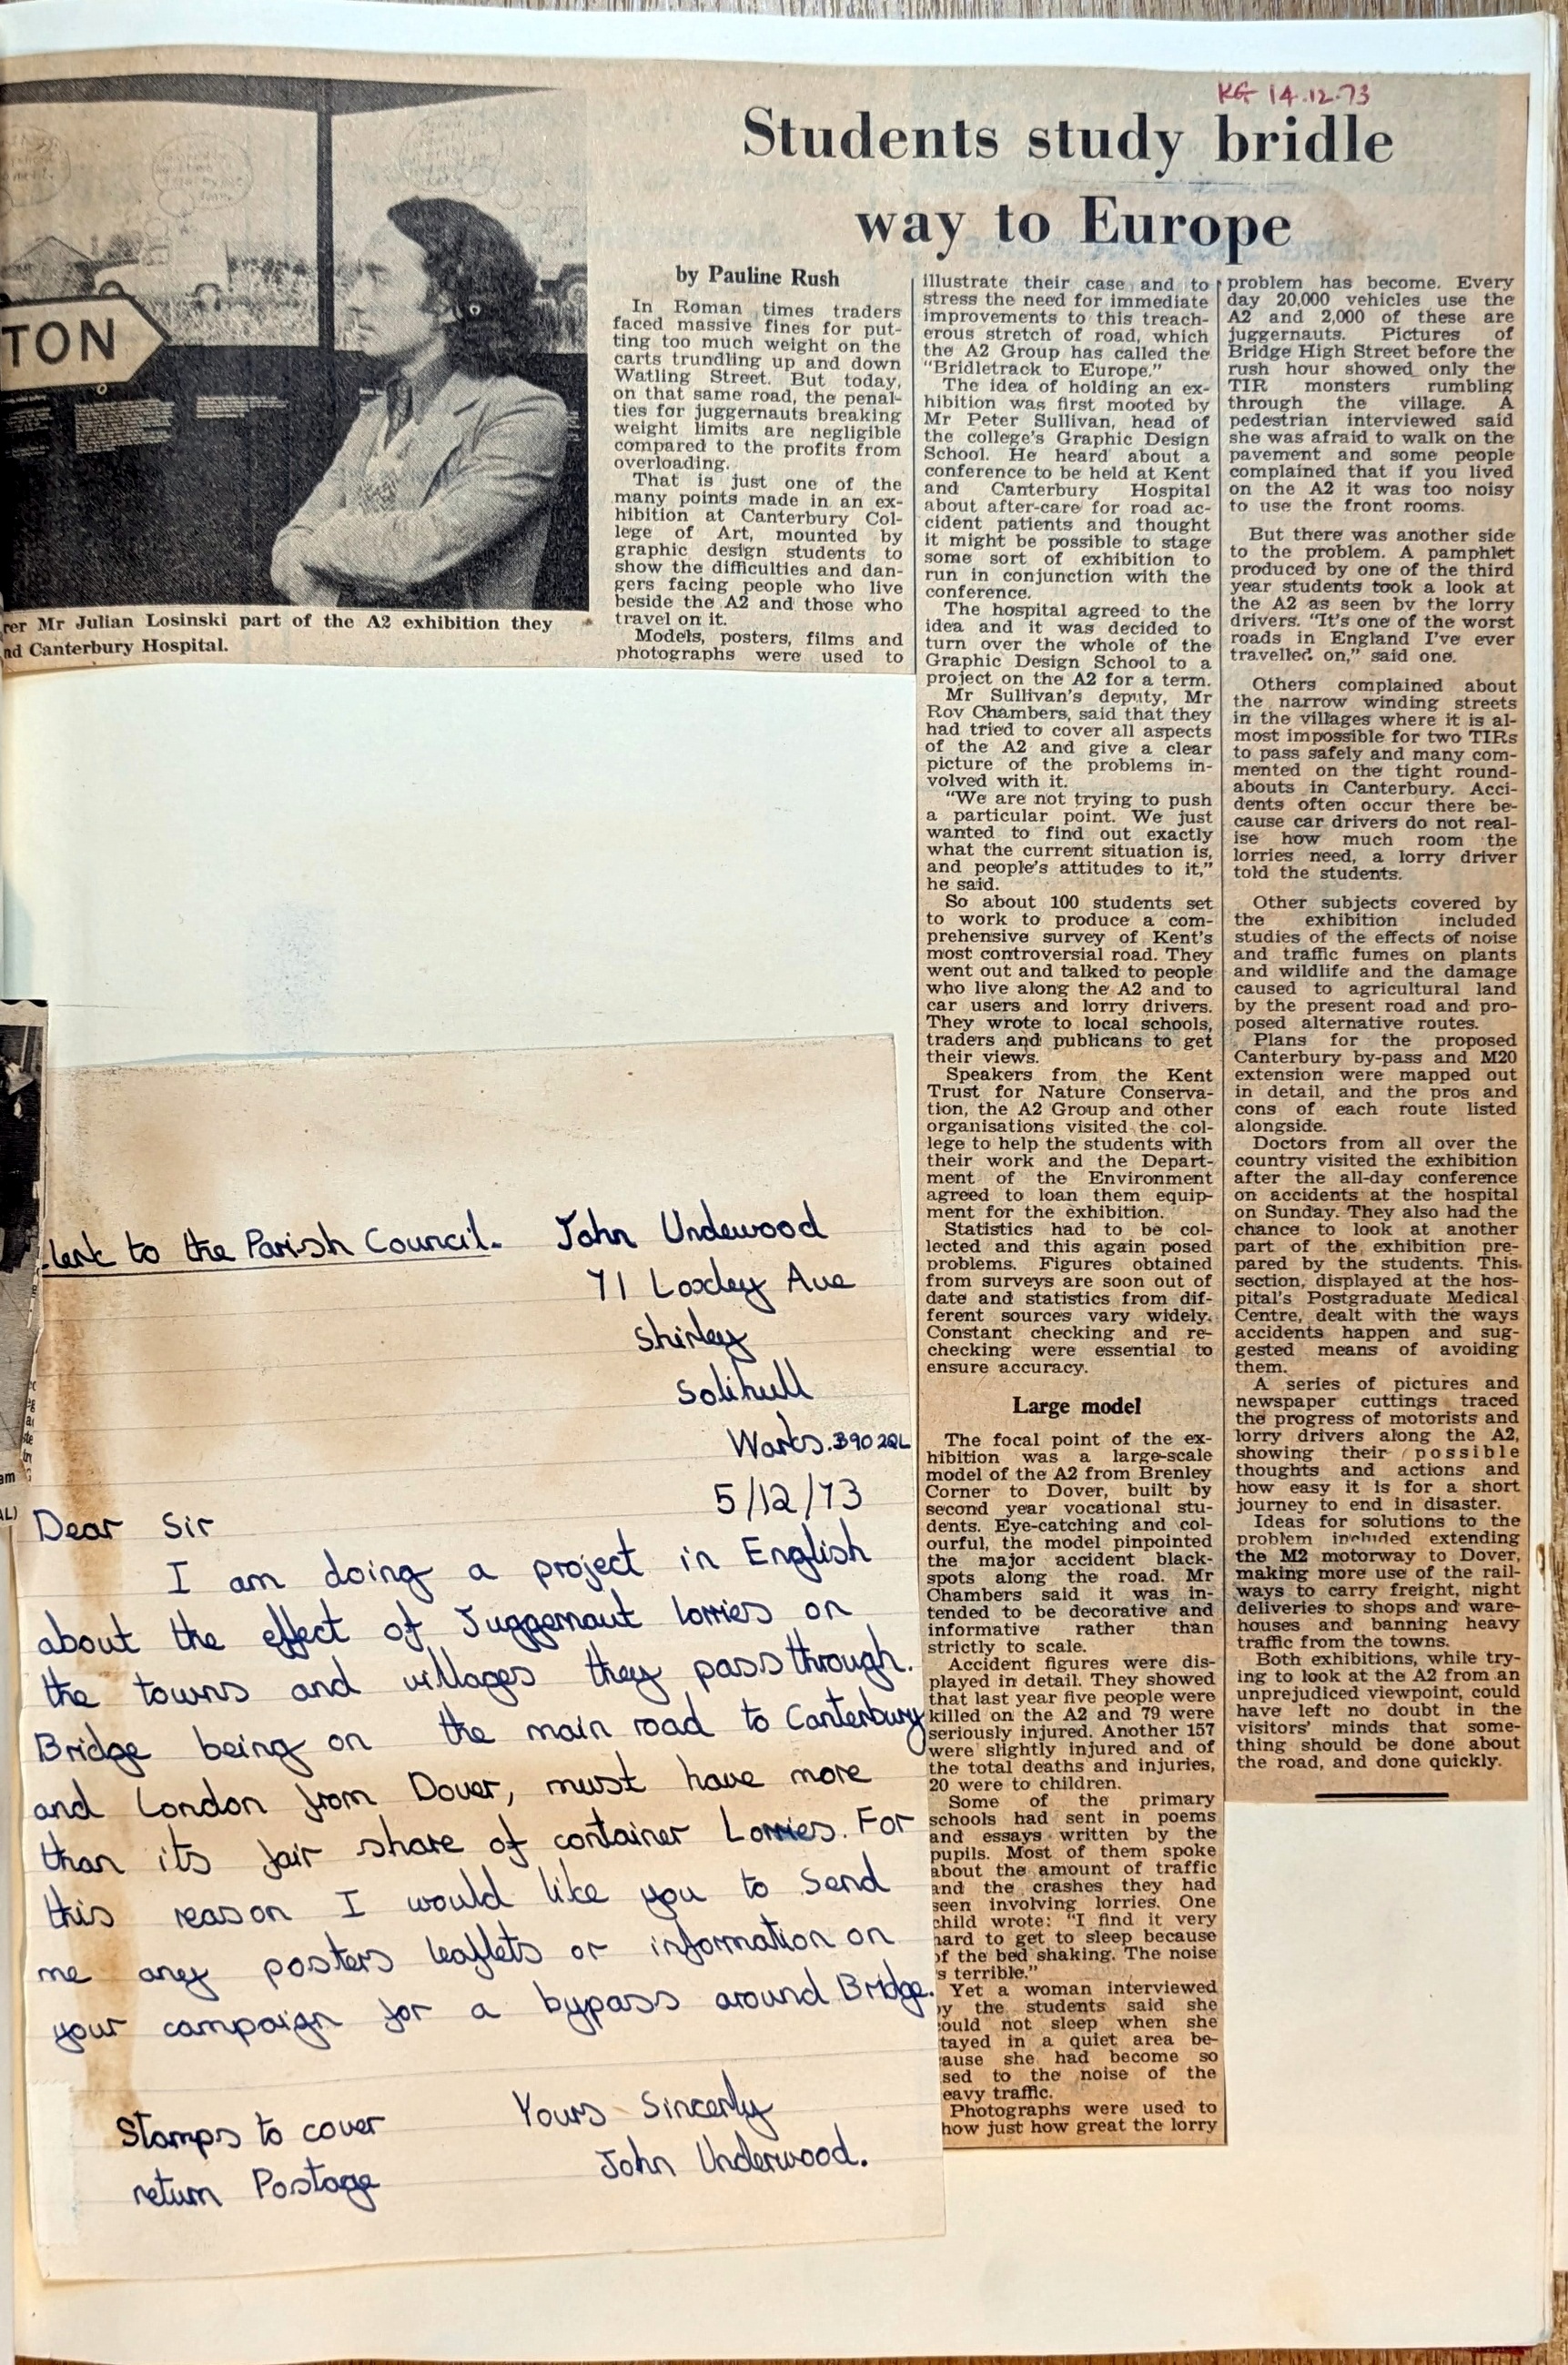 KG 14.12.73
Students study bridle
way to Europe
TON
rer Mr Julian Losinski part of the A2 exhibition they
nd Canterbury Hospital.
by Pauline Rush
In Roman times traders
faced massive fines for put-
ting too much weight on the
carts trundling up and down
Watling Street. But today,
on that same road, the penal-
ties for juggernauts breaking
weight limits are negligible
compared to the profits from
overloading.
That is just one of the
many points made in an ex-
hibition at Canterbury Col-
lege of Art, mounted by
graphic design students to
show the difficulties and dan-
gers facing people who live
beside the A2 and those who
travel on it.
Models, posters, films and
photographs were used to
illustrate their case and to
stress the need for immediate
improvements to this treach-
erous stretch of road, which
the A2 Group has called the
"Bridletrack to Europe."
The idea of holding an ex-
hibition was first mooted by
Mr Peter Sullivan, head of
the college's Graphic Design
School. He heard about a
conference to be held at Kent
and Canterbury Hospital
about after-care for road ac-
cident patients and thought
it might be possible to stage
some sort of exhibition to
run in conjunction with the
conference.
The hospital agreed to the
idea and it was decided to
turn over the whole of the
Graphic Design School to a
project on the A2 for a term.
Mr Sullivan's deputy, Mr
Roy Chambers, said that they
had tried to cover all aspects
of the A2 and give a clear
picture of the problems in-
volved with it.
"We are not trying to push
a particular point. We just
wanted to find out exactly
what the current situation is,
and people's attitudes to it,"
he said.
So about 100 students set
to work to produce a com-
prehensive survey of Kent's
most controversial road. They
went out and talked to people
who live along the A2 and to
car users and lorry drivers.
They wrote to local schools,
traders and publicans to get
their views.
Speakers from the Kent
Trust for Nature Conserva-
tion, the A2 Group and other
organisations visited the col-
lege to help the students with
their work and the Depart-
ment of the Environment
agreed to loan them equip-
ment for the exhibition.
Statistics had to be col-
lected and this again posed
problems. Figures obtained
from surveys are soon out of
date and statistics from dif-
ferent sources vary widely.
Constant checking and re-
checking were essential to
ensure accuracy.
Large model
The focal point of the ex-
hibition was a large-scale
model of the A2 from Brenley
Corner to Dover, built by
second year vocational stu-
dents. Eye-catching and col-
ourful, the model pinpointed
the major accident black-
spots along the road. Mr
Chambers said it was in-
tended to be decorative and
informative rather than
strictly to scale.
Accident figures were dis-
played in detail. They showed
that last year five people were
killed on the A2 and 79 were
seriously injured. Another 157
were slightly injured and of
the total deaths and injuries,
20 were to children.
Some of the primary
schools had sent in poems
and essays written by the
pupils. Most of them spoke
about the amount of traffic
and the crashes they had
seen involving lorries. One
child wrote: "I find it very
hard to get to sleep because
of the bed shaking. The noise
s terrible."
Yet a woman interviewed
by the students said she
ould not sleep when she
tayed in a quiet area be-
ause she had become so
sed to the noise of the
eavy traffic.
Photographs were used to
how just how great the lorry
problem has become. Every
day 20,000 vehicles use the
A2 and 2,000 of these are
juggernauts. Pictures of
Bridge High Street before the
rush hour showed only the
TIR monsters rumbling
through the village. A
pedestrian interviewed said
she was afraid to walk on the
pavement and some people
complained that if you lived
on the A2 it was too noisy
to use the front rooms.
But there was another side
to the problem. A pamphlet
produced by one of the third
year students took a look at
the A2 as seen by the lorry
drivers. "It's one of the worst
roads in England I've ever
travelled on," said one.
Others complained about
the narrow winding streets
in the villages where it is al-
most impossible for two TIRs
to pass safely and many com-
mented on the tight round-
abouts in Canterbury. Acci-
dents often occur there be-
cause car drivers do not real-
ise how much room the
lorries need, a lorry driver
told the students.
Other subjects covered by
the exhibition included
studies of the effects of noise
and traffic fumes on plants
and wildlife and the damage
caused to agricultural land
by the present road and pro-
posed alternative routes.
Plans for the proposed
Canterbury by-pass and M20
extension were mapped out
in detail, and the pros and
cons of each route listed
alongside.
Doctors from all over the
country visited the exhibition
after the all-day conference
on accidents at the hospital
on Sunday. They also had the
chance to look at another
part of the exhibition pre-
pared by the students. This
section, displayed at the hos-
pital's Postgraduate Medical
Centre, dealt with the ways
accidents happen and sug-
gested means of avoiding
them.
A series of pictures and
newspaper cuttings traced
the progress of motorists and
lorry drivers along the A2,
showing their possible
thoughts and actions and
how easy it is for a short
journey to end in disaster.
Ideas for solutions to the
problem included extending
the M2 motorway to Dover,
making more use of the rail-
ways to carry freight, night
deliveries to shops and ware-
houses and banning heavy
traffic from the towns.
Both exhibitions, while try-
ing to look at the A2 from an
unprejudiced viewpoint, could
have left no doubt in the
visitors' minds that some-
thing should be done about
the road, and done quickly.
lerk to the Parish Council. John Undewood
71 Loxley Ave
Shirley
Solihull
Warks. B90 2QL
5/12/73
Dear Sir
I am doing a project in English
about the effect of Juggernaut lorries on
the towns and villages they pass through.
Bridge being on the main road to Canterbury
and London from Dover, must have more
than its fair share of container Lorries. For
this reason I would like you to send
me any posters leaflets or information on
your campaign for a bypass around Bridge.
Yours Sincerly
John Underwood.
Stamps to cover
return Postage